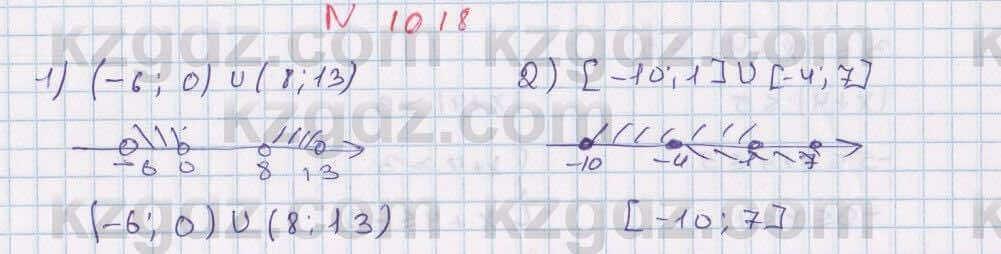 N 1018
1) (-6; 0) U (8; 13)
2) [-10; 1] U [-4; 7]
-6 0 8 13
-10 -4 1 7
(-6; 0) U (8; 13)
[-10; 7]
kzgdz.com kzgdz.com
kzgdz.com
kzgdz.com kzgdz.com